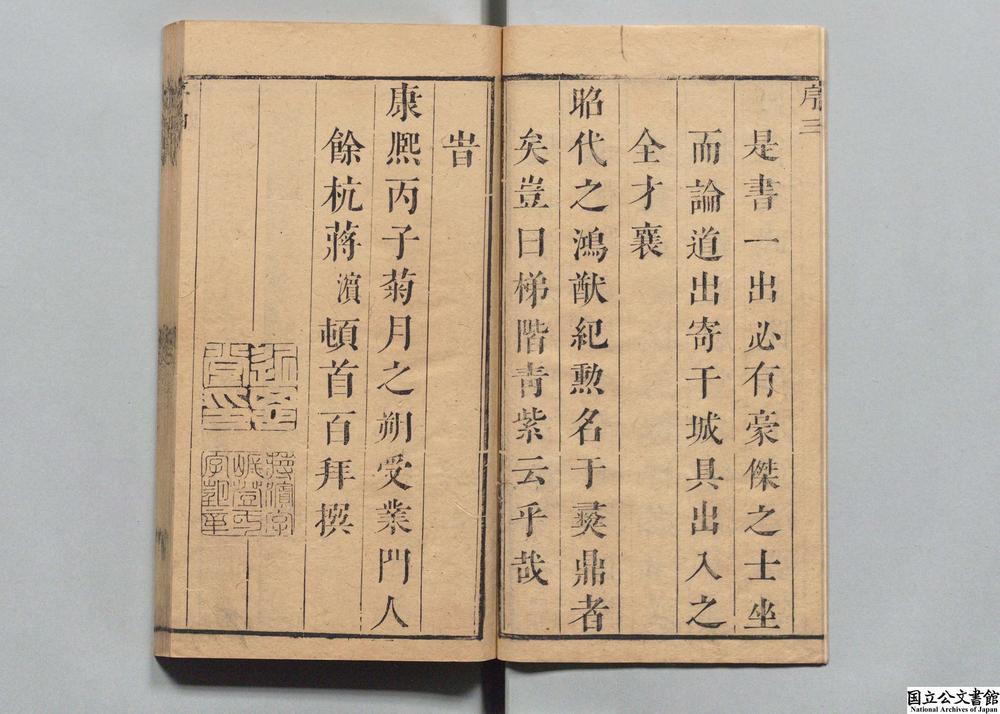 序 三
是書一出必有豪傑之士坐
而論道出寄干城具出入之
全才襄
昭代之鴻猷紀勲名于彛鼎者
矣豈曰梯階青紫云乎哉
旹
康熈丙子菊月之朔受業門人
餘杭蔣濵頓首百拜撰
国立公文書館
National Archives of Japan